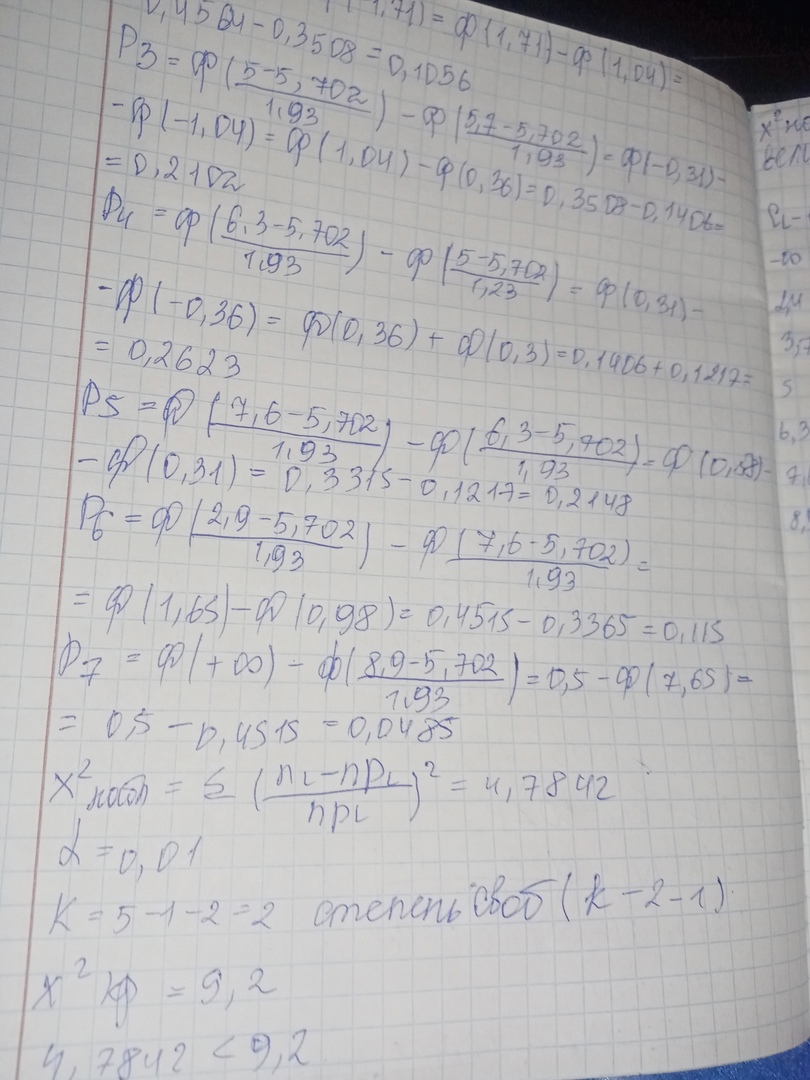 0,4564-0,3508=0,1056
1,71) = Ф(1,71)-Ф(1,04)=
P3 = Ф(5-5,702/1,93) - Ф(5,7-5,702/1,93)= Ф(-0,31)-
-Ф(-1,04)= Ф(1,04)-Ф(0,36)=0,3508-0,1406=
= 0,2102
P4 = Ф(6,3-5,702/1,93) - Ф(5-5,702/1,23) = Ф(0,31)-
-Ф(-0,36)= Ф(0,36)+Ф(0,3)=0,1406+0,1217=
= 0,2623
P5 = Ф(7,6-5,702/1,93) - Ф(6,3-5,702/1,93)= Ф(0,98)-
-Ф(0,31)= 0,3315-0,1217=0,2148
P6 = Ф(2,9-5,702/1,93) - Ф(7,6-5,702/1,93)=
= Ф(1,65)-Ф(0,98)= 0,4515-0,3365=0,115
P7 = Ф(+∞) - Ф(8,9-5,702/1,93)=0,5-Ф(7,65)=
= 0,5-0,4515=0,0485
X² набл = Σ (ni-npi/npi)² = 4,7842
α=0,01
K=5-1-2=2 степень своб (k-2-1)
X² кр = 9,2
4,7842 < 9,2
X² на
если
-∞
2,4
3,7
5
6,3